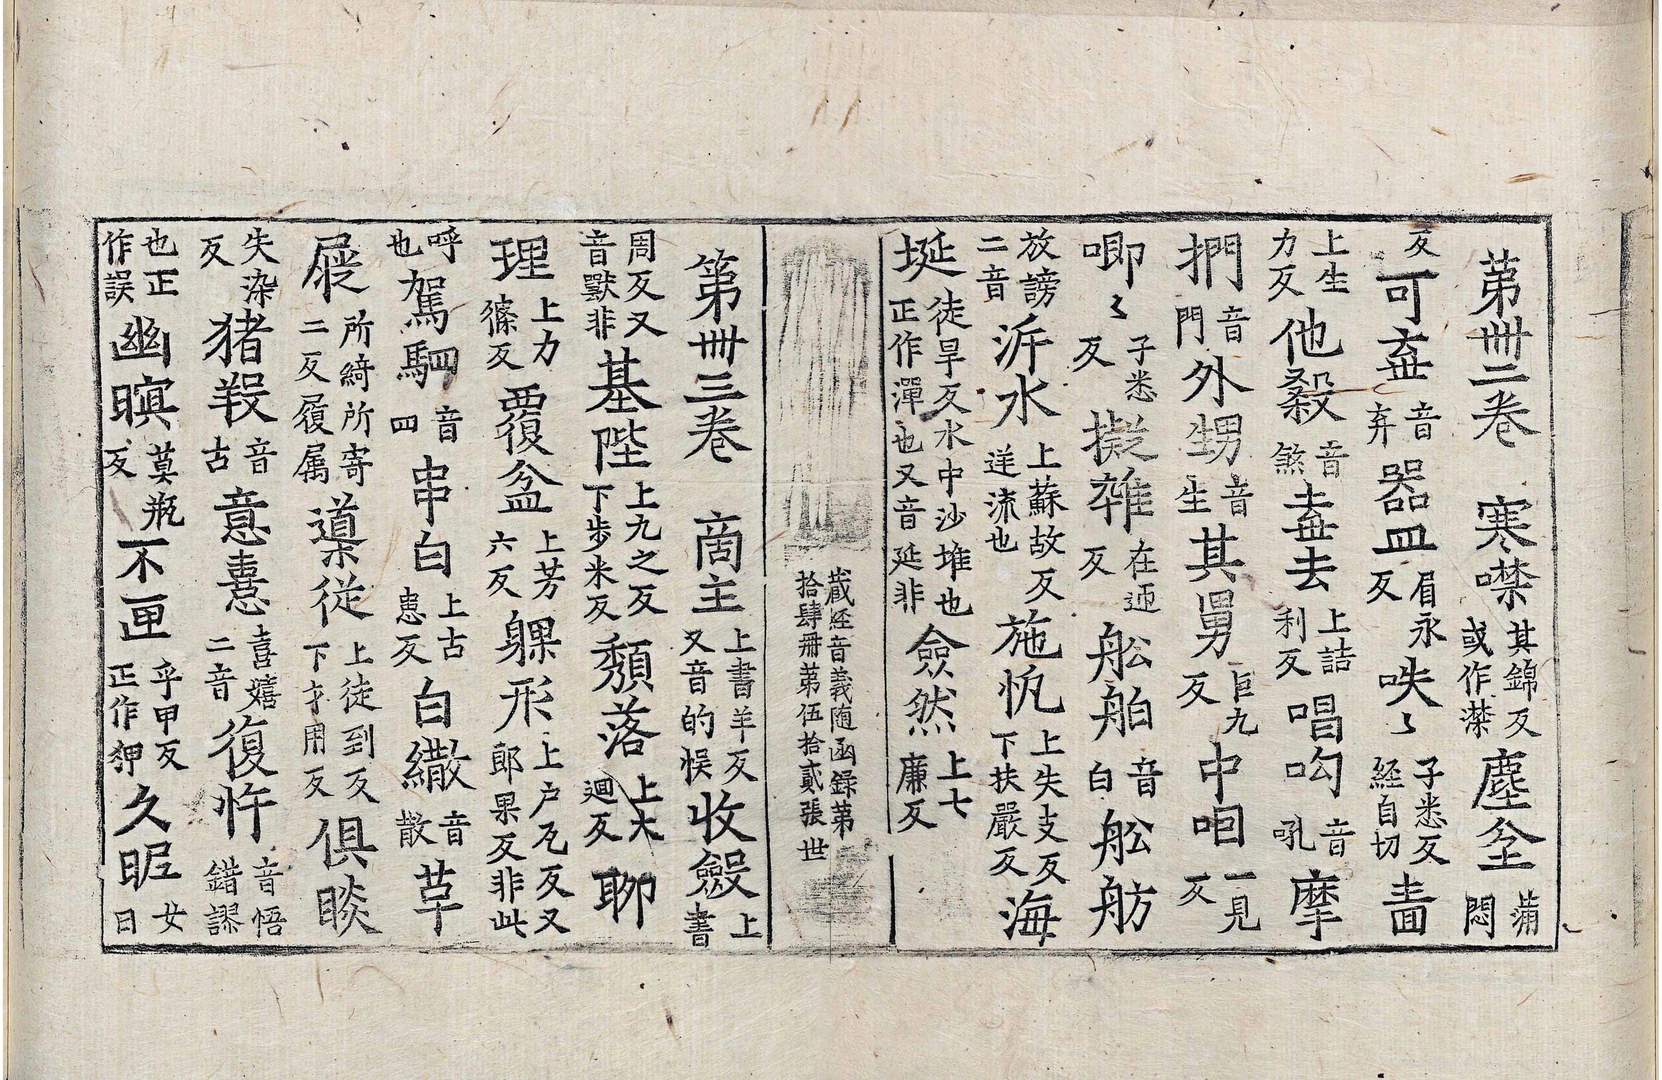 第卌二卷　寒噤其錦反或作㵾塵坌蒲悶
反可盍音弃器皿眉永反咥〻子悉反經自切晝
上生力反他殺音煞盍去上詰利反唱吻音吼摩
捫音門外甥音生其舅巨九反中咽一見反
唧〻子悉反擬雜在迊反舩舶音白舩舫
放謗二音泝水上蘇故反逆流也施帆上失支反下扶嚴反海
埏徒旱反水中沙堆也正作潬也又音延非僉然上七廉反
藏経音義随函錄第
拾肆册第伍拾貳張　世
第卌三卷　啇主上書羊反又音的悮收斂上書
周反又音獸非基陛上九之反下步米反頽落上大迴反聊
理上力條反覆盆上芳六反躶形上户瓦反又郎果反非此
呼也駕駟音四串白上古患反白繖音散草
屣所綺所寄二反履属導従上徒到反下才用反俱睒
失染反猪羖音古意憙喜嬉二音復忤音悟錯謬
也正作誤幽暝莫瓶反不匣乎甲反正作狎久昵女日